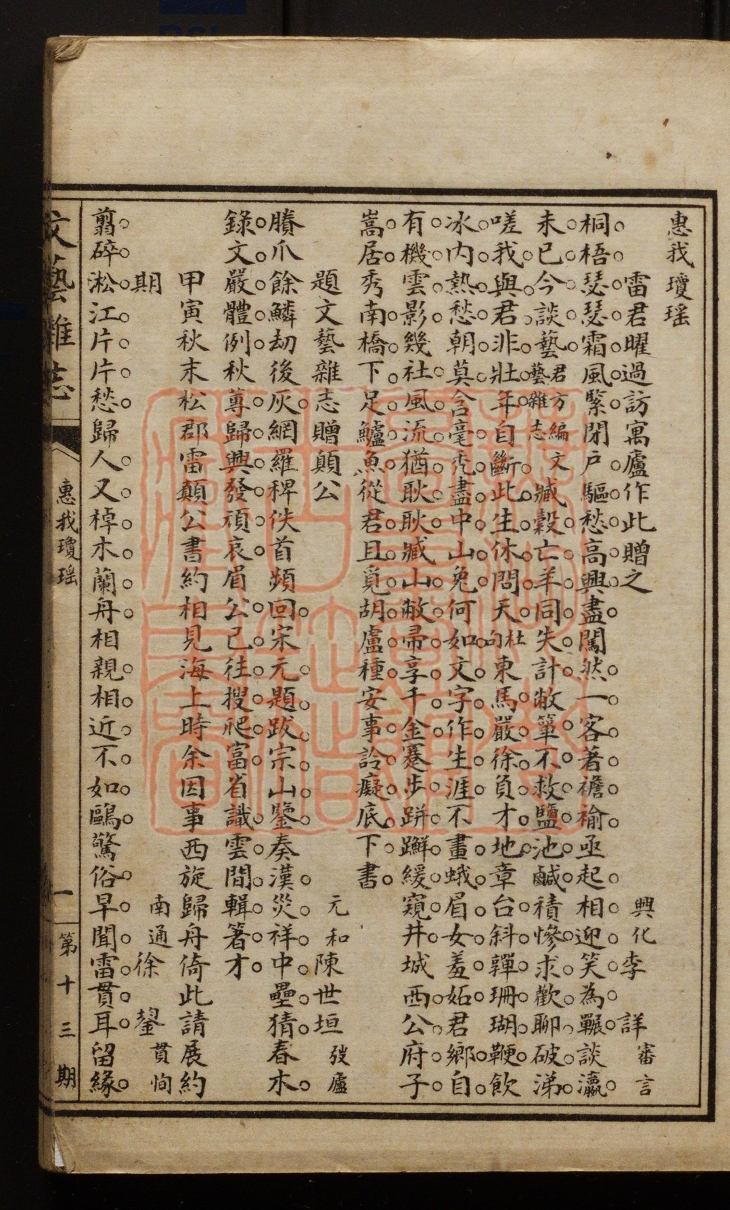 惠我瓊瑤
雷君曜過訪寓廬作此贈之　興化李　詳審言
桐梧瑟瑟霜風緊閉戶驅愁高興盡闖然一客著襜褕亟起相迎笑為囅談瀛
未已今談藝君方編文藝雜志臧穀亡羊同失計敝箄不救鹽池鹹積慘求歡聊破涕
嗟我與君非壯年自斷此生休問天杜句東馬嚴徐負才地章台斜嚲珊瑚鞭飲
冰內熱愁朝莫含毫禿盡中山兔何如文字作生涯不畫蛾眉女羞妬君鄉自
有機雲影幾社風流猶耿耿臧山敝帚享千金蹇步跰躃緩窺井城西公府子
嵩居秀南橋下足鱸魚從君且覓胡盧種安事詅癡底下書
題文藝雜志贈顛公　元和陳世垣㢸廬
賸爪餘鱗劫後灰網羅稗佚首頻回宋元題跋宗山鑒秦漢災祥中壘猜春木
錄文嚴體例秋蓴歸興發頑哀眉公已往搜爬富省識雲間輯箸才
甲寅秋末松郡雷顛公書約相見海上時余因事西旋歸舟倚此請展約
期　南通徐　鋆貫恂
翦碎淞江片片愁歸人又棹木蘭舟相親相近不如鷗驚俗早聞雷貫耳留緣
文藝雜志
惠我瓊瑤
一
第十三期